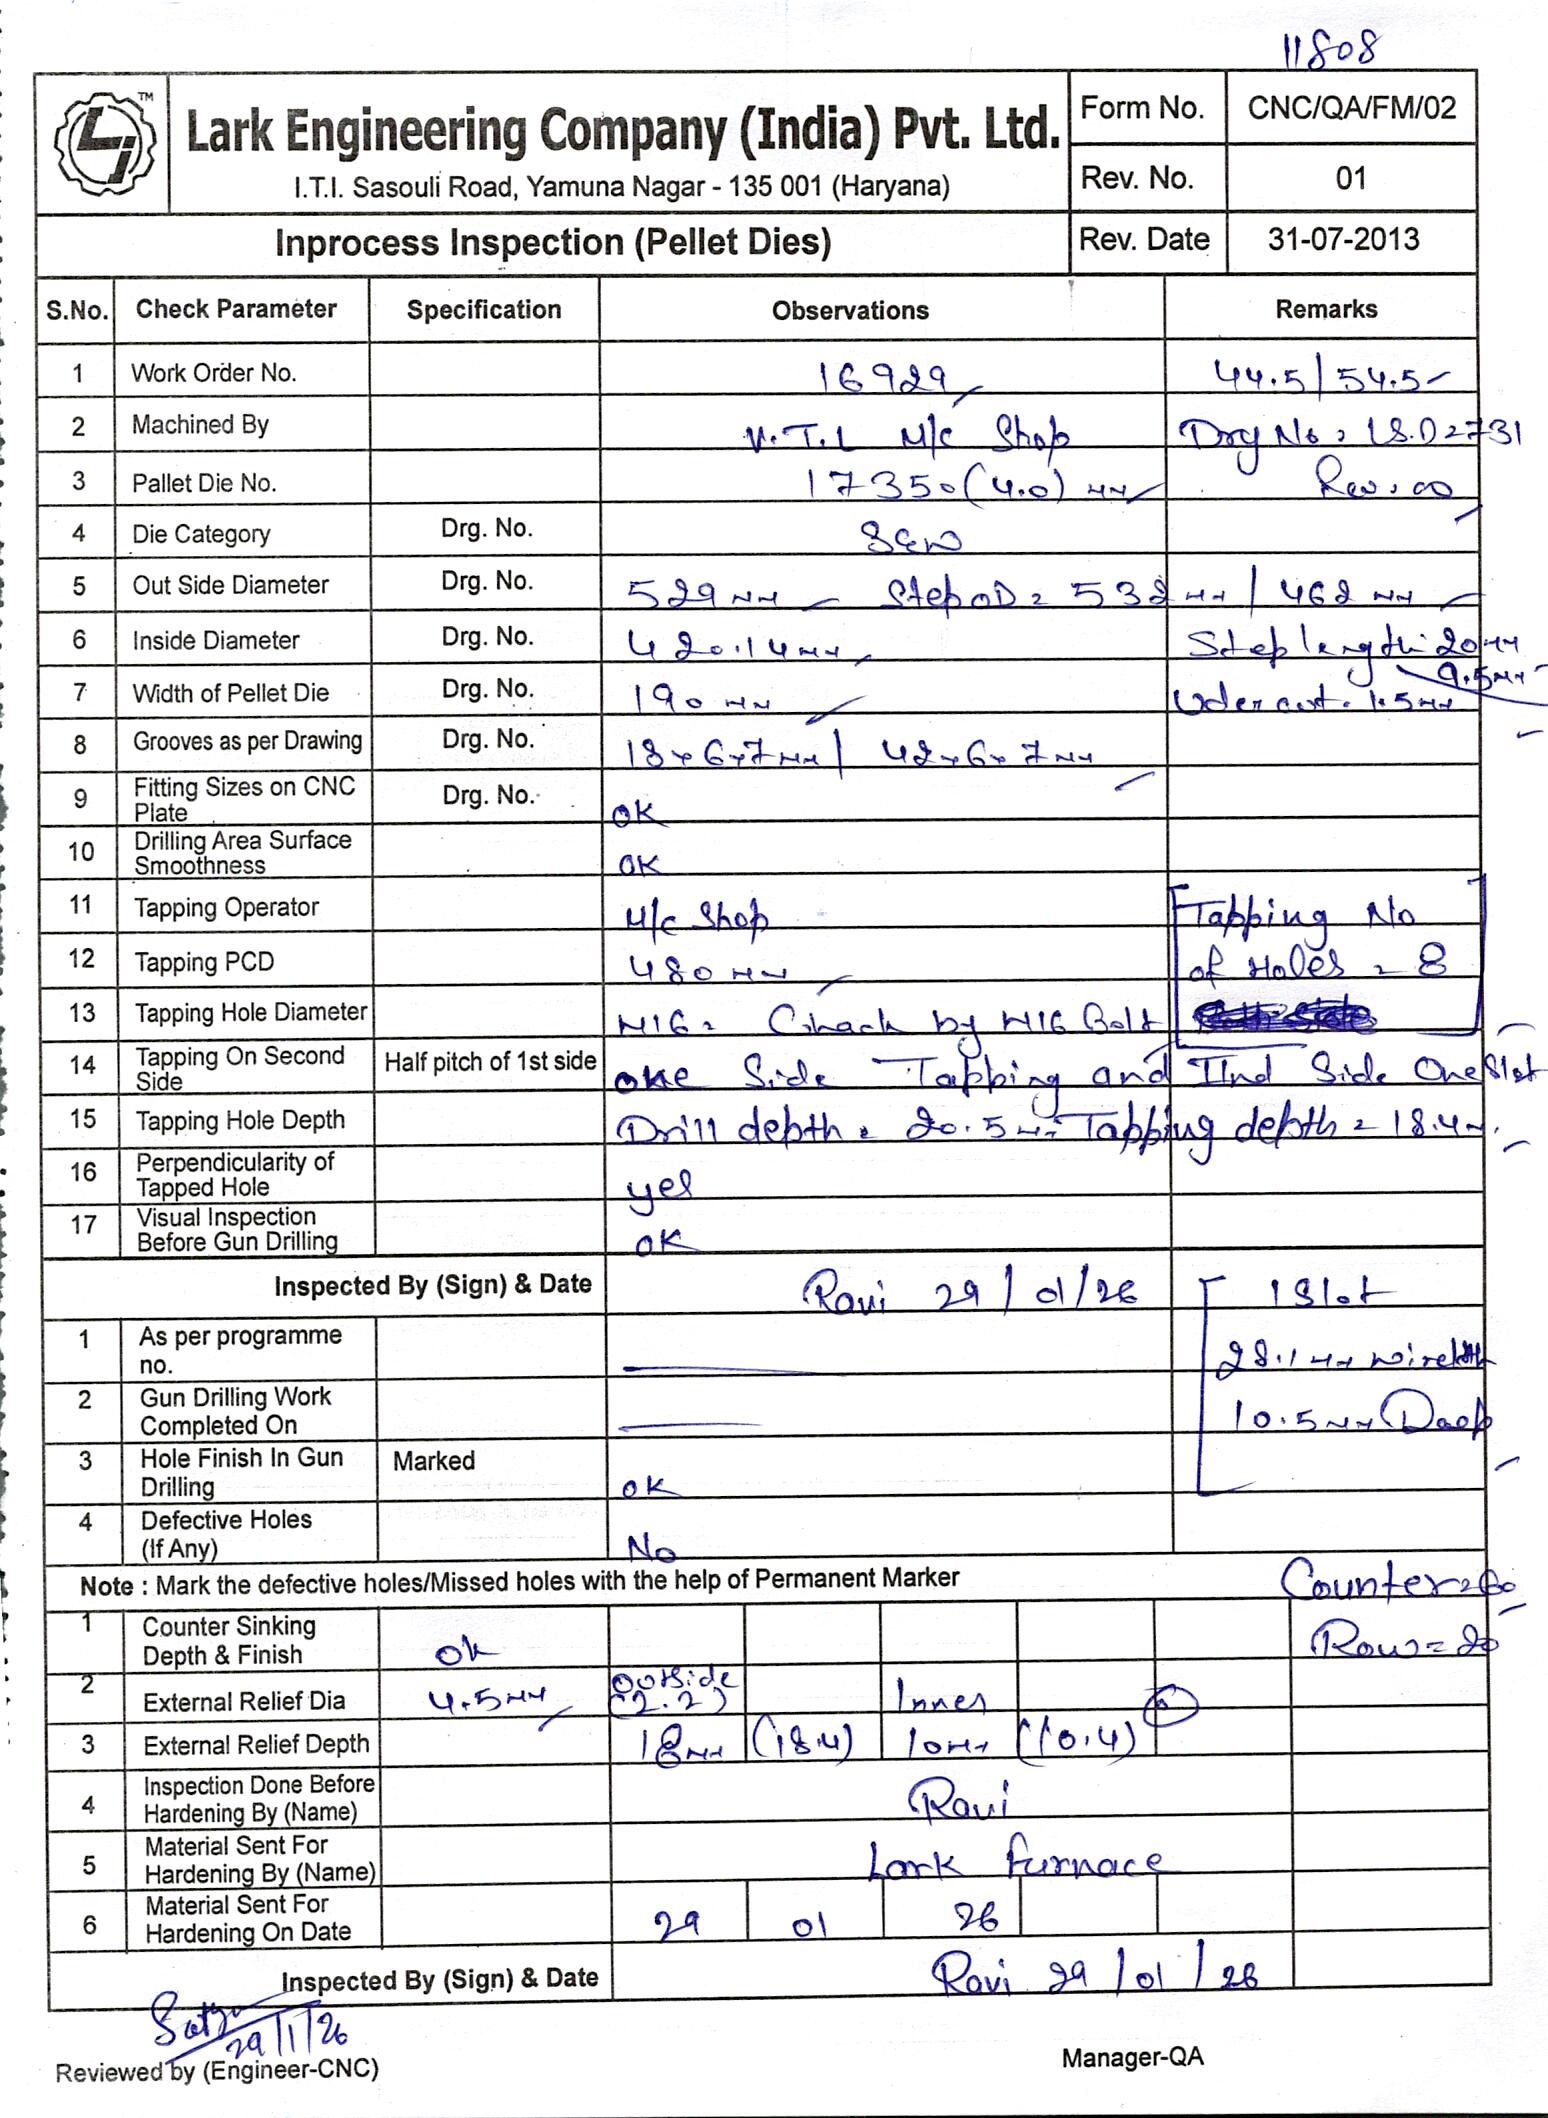 11808
TM
Lark Engineering Company (India) Pvt. Ltd.
I.T.I. Sasouli Road, Yamuna Nagar - 135 001 (Haryana)
Form No. CNC/QA/FM/02
Rev. No. 01
Inprocess Inspection (Pellet Dies)
Rev. Date 31-07-2013
S.No. Check Parameter Specification Observations Remarks
1 Work Order No. 16929 44.5/54.5
2 Machined By V.T.L M/c Shop Drg No = LS.D2731
3 Pallet Die No. 17350(4.0) mm Rev. 00
4 Die Category Drg. No.
5 Out Side Diameter Drg. No. 529mm Step OD = 532mm/462mm
6 Inside Diameter Drg. No. 420.14mm Step length 20mm
9.5mm
7 Width of Pellet Die Drg. No. 190mm Uder cut. 1.5mm
8 Grooves as per Drawing Drg. No. 18x6x7mm/ 42x6x7mm
9 Fitting Sizes on CNC Plate Drg. No. OK
10 Drilling Area Surface Smoothness OK
11 Tapping Operator M/c Shop Tapping No
12 Tapping PCD 480mm of Holes = 8
13 Tapping Hole Diameter M16 = Chack by M16 Bolt
14 Tapping On Second Side Half pitch of 1st side one Side Tapping and IInd Side One Slot
15 Tapping Hole Depth Drill depth = 20.5mm Tapping depth = 18.4m.
16 Perpendicularity of Tapped Hole yes
17 Visual Inspection Before Gun Drilling OK
Inspected By (Sign) & Date Ravi 29/01/26 1 Slot
1 As per programme no. 28.1mm
2 Gun Drilling Work Completed On 10.5mm Deep
3 Hole Finish In Gun Drilling Marked OK
4 Defective Holes (If Any) No
Note : Mark the defective holes/Missed holes with the help of Permanent Marker Counter=60
1 Counter Sinking Depth & Finish ok Row=20
2 External Relief Dia 4.5mm Outside (2.2) Inner
3 External Relief Depth 18mm (18.4) 10mm (10.4)
4 Inspection Done Before Hardening By (Name) Ravi
5 Material Sent For Hardening By (Name) Lark furnace
6 Material Sent For Hardening On Date 29 01 26
Inspected By (Sign) & Date Ravi 29/01/26
29/1/26
Reviewed by (Engineer-CNC) Manager-QA